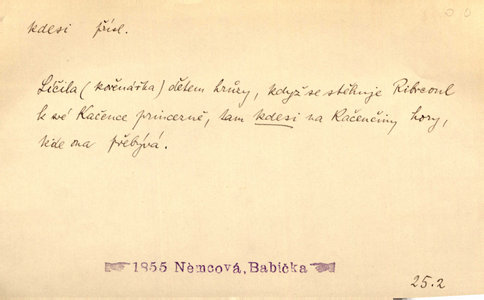 kdesi přísl.
Líčila (kořenářka) dětem hrůzy, když se stěhuje Ribrcoul
k své Kačence princezně, tam kdesi na Kačenčiny hory,
kde ona přebývá.
1855 Němcová, Babička
25.2